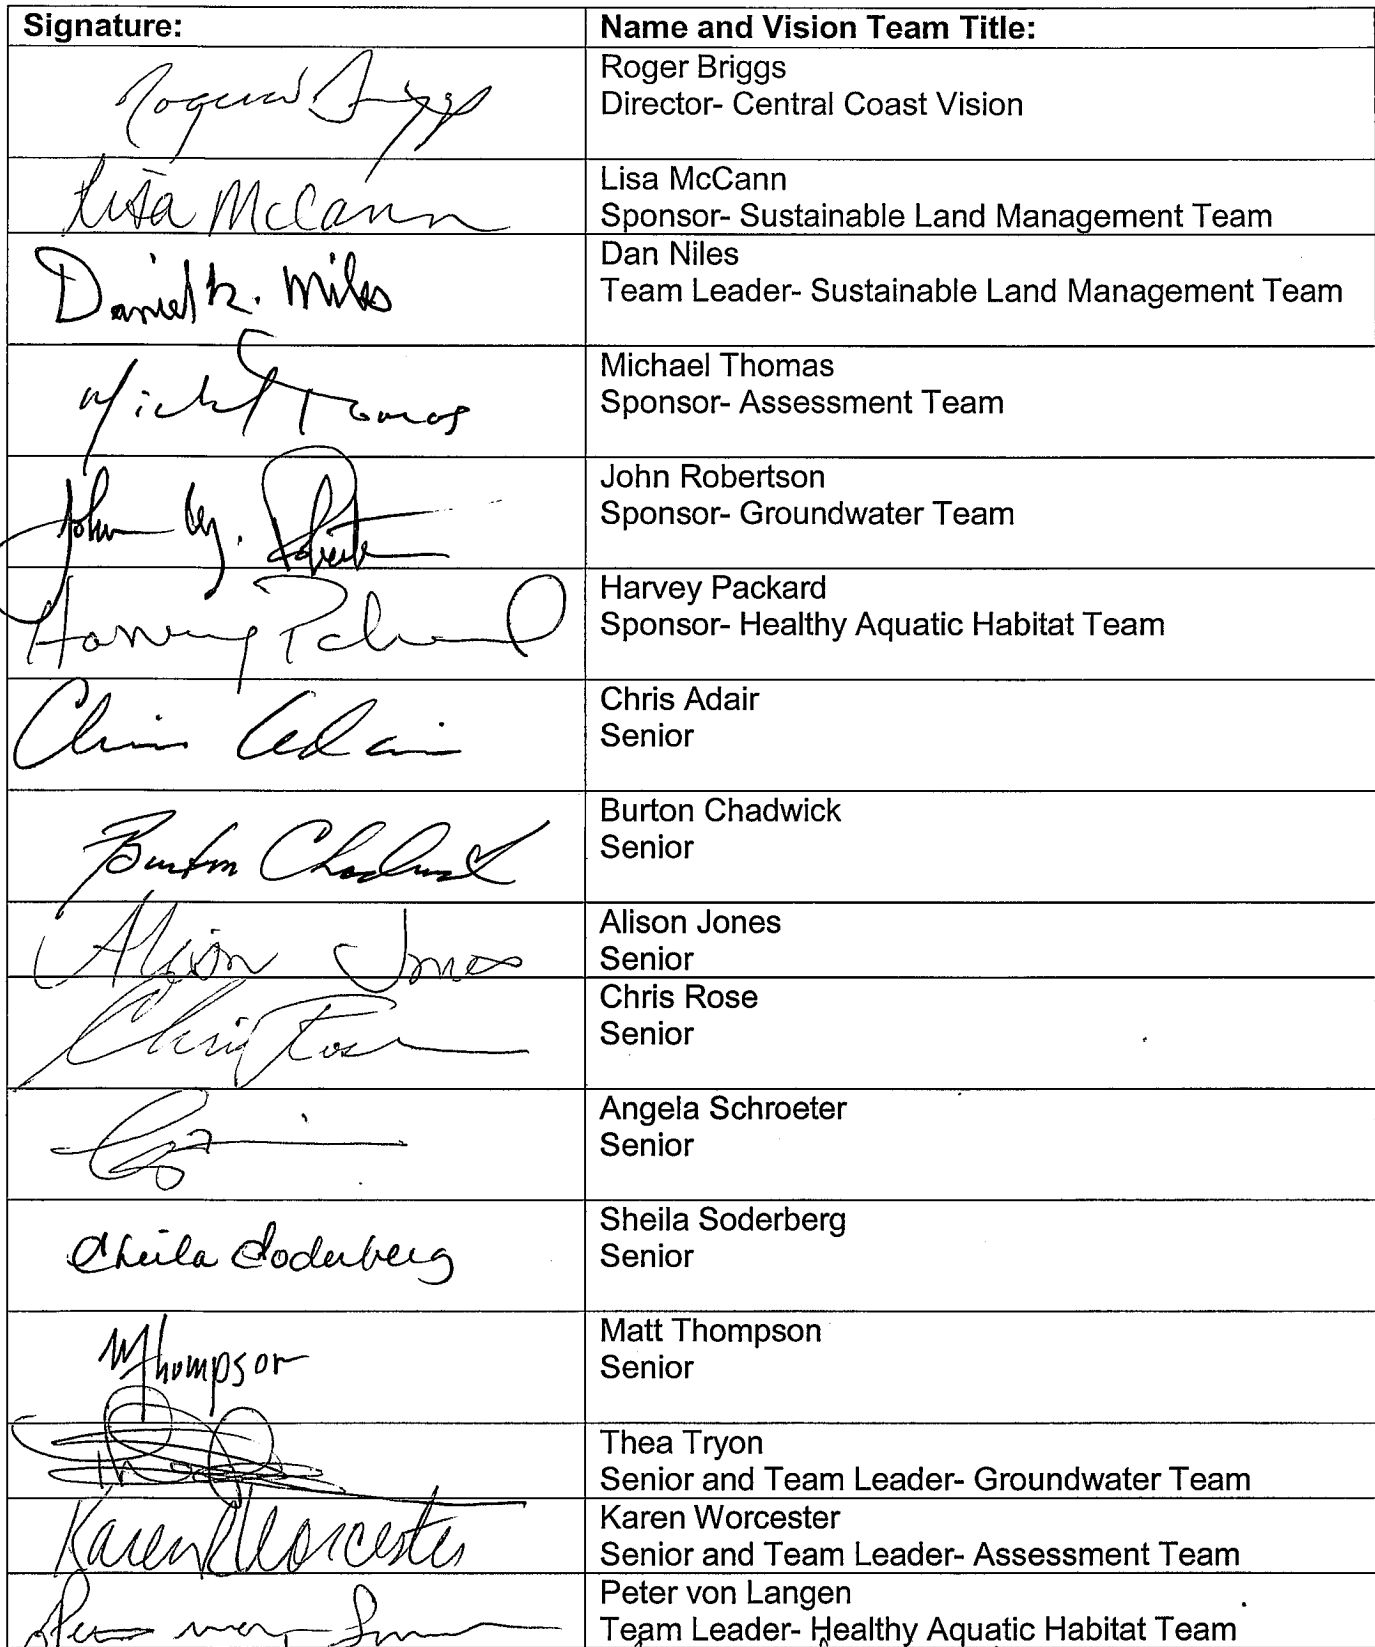 Signature:
Name and Vision Team Title:
Roger Briggs
Director- Central Coast Vision
Lisa McCann
Lisa McCann
Sponsor- Sustainable Land Management Team
Daniel
Dan Niles
Team Leader- Sustainable Land Management Team
Michael Thomas
Michael Thomas
Sponsor- Assessment Team
John
John Robertson
Sponsor- Groundwater Team
Harvey
Harvey Packard
Sponsor- Healthy Aquatic Habitat Team
Chris Adair
Chris Adair
Senior
Burton Chadwick
Burton Chadwick
Senior
Alison Jones
Alison Jones
Senior
Chris Rose
Chris Rose
Senior
Angela Schroeter
Senior
Sheila Soderberg
Sheila Soderberg
Senior
MThompson
Matt Thompson
Senior
Thea Tryon
Senior and Team Leader- Groundwater Team
Karen Worcester
Karen Worcester
Senior and Team Leader- Assessment Team
Peter von Langen
Team Leader- Healthy Aquatic Habitat Team